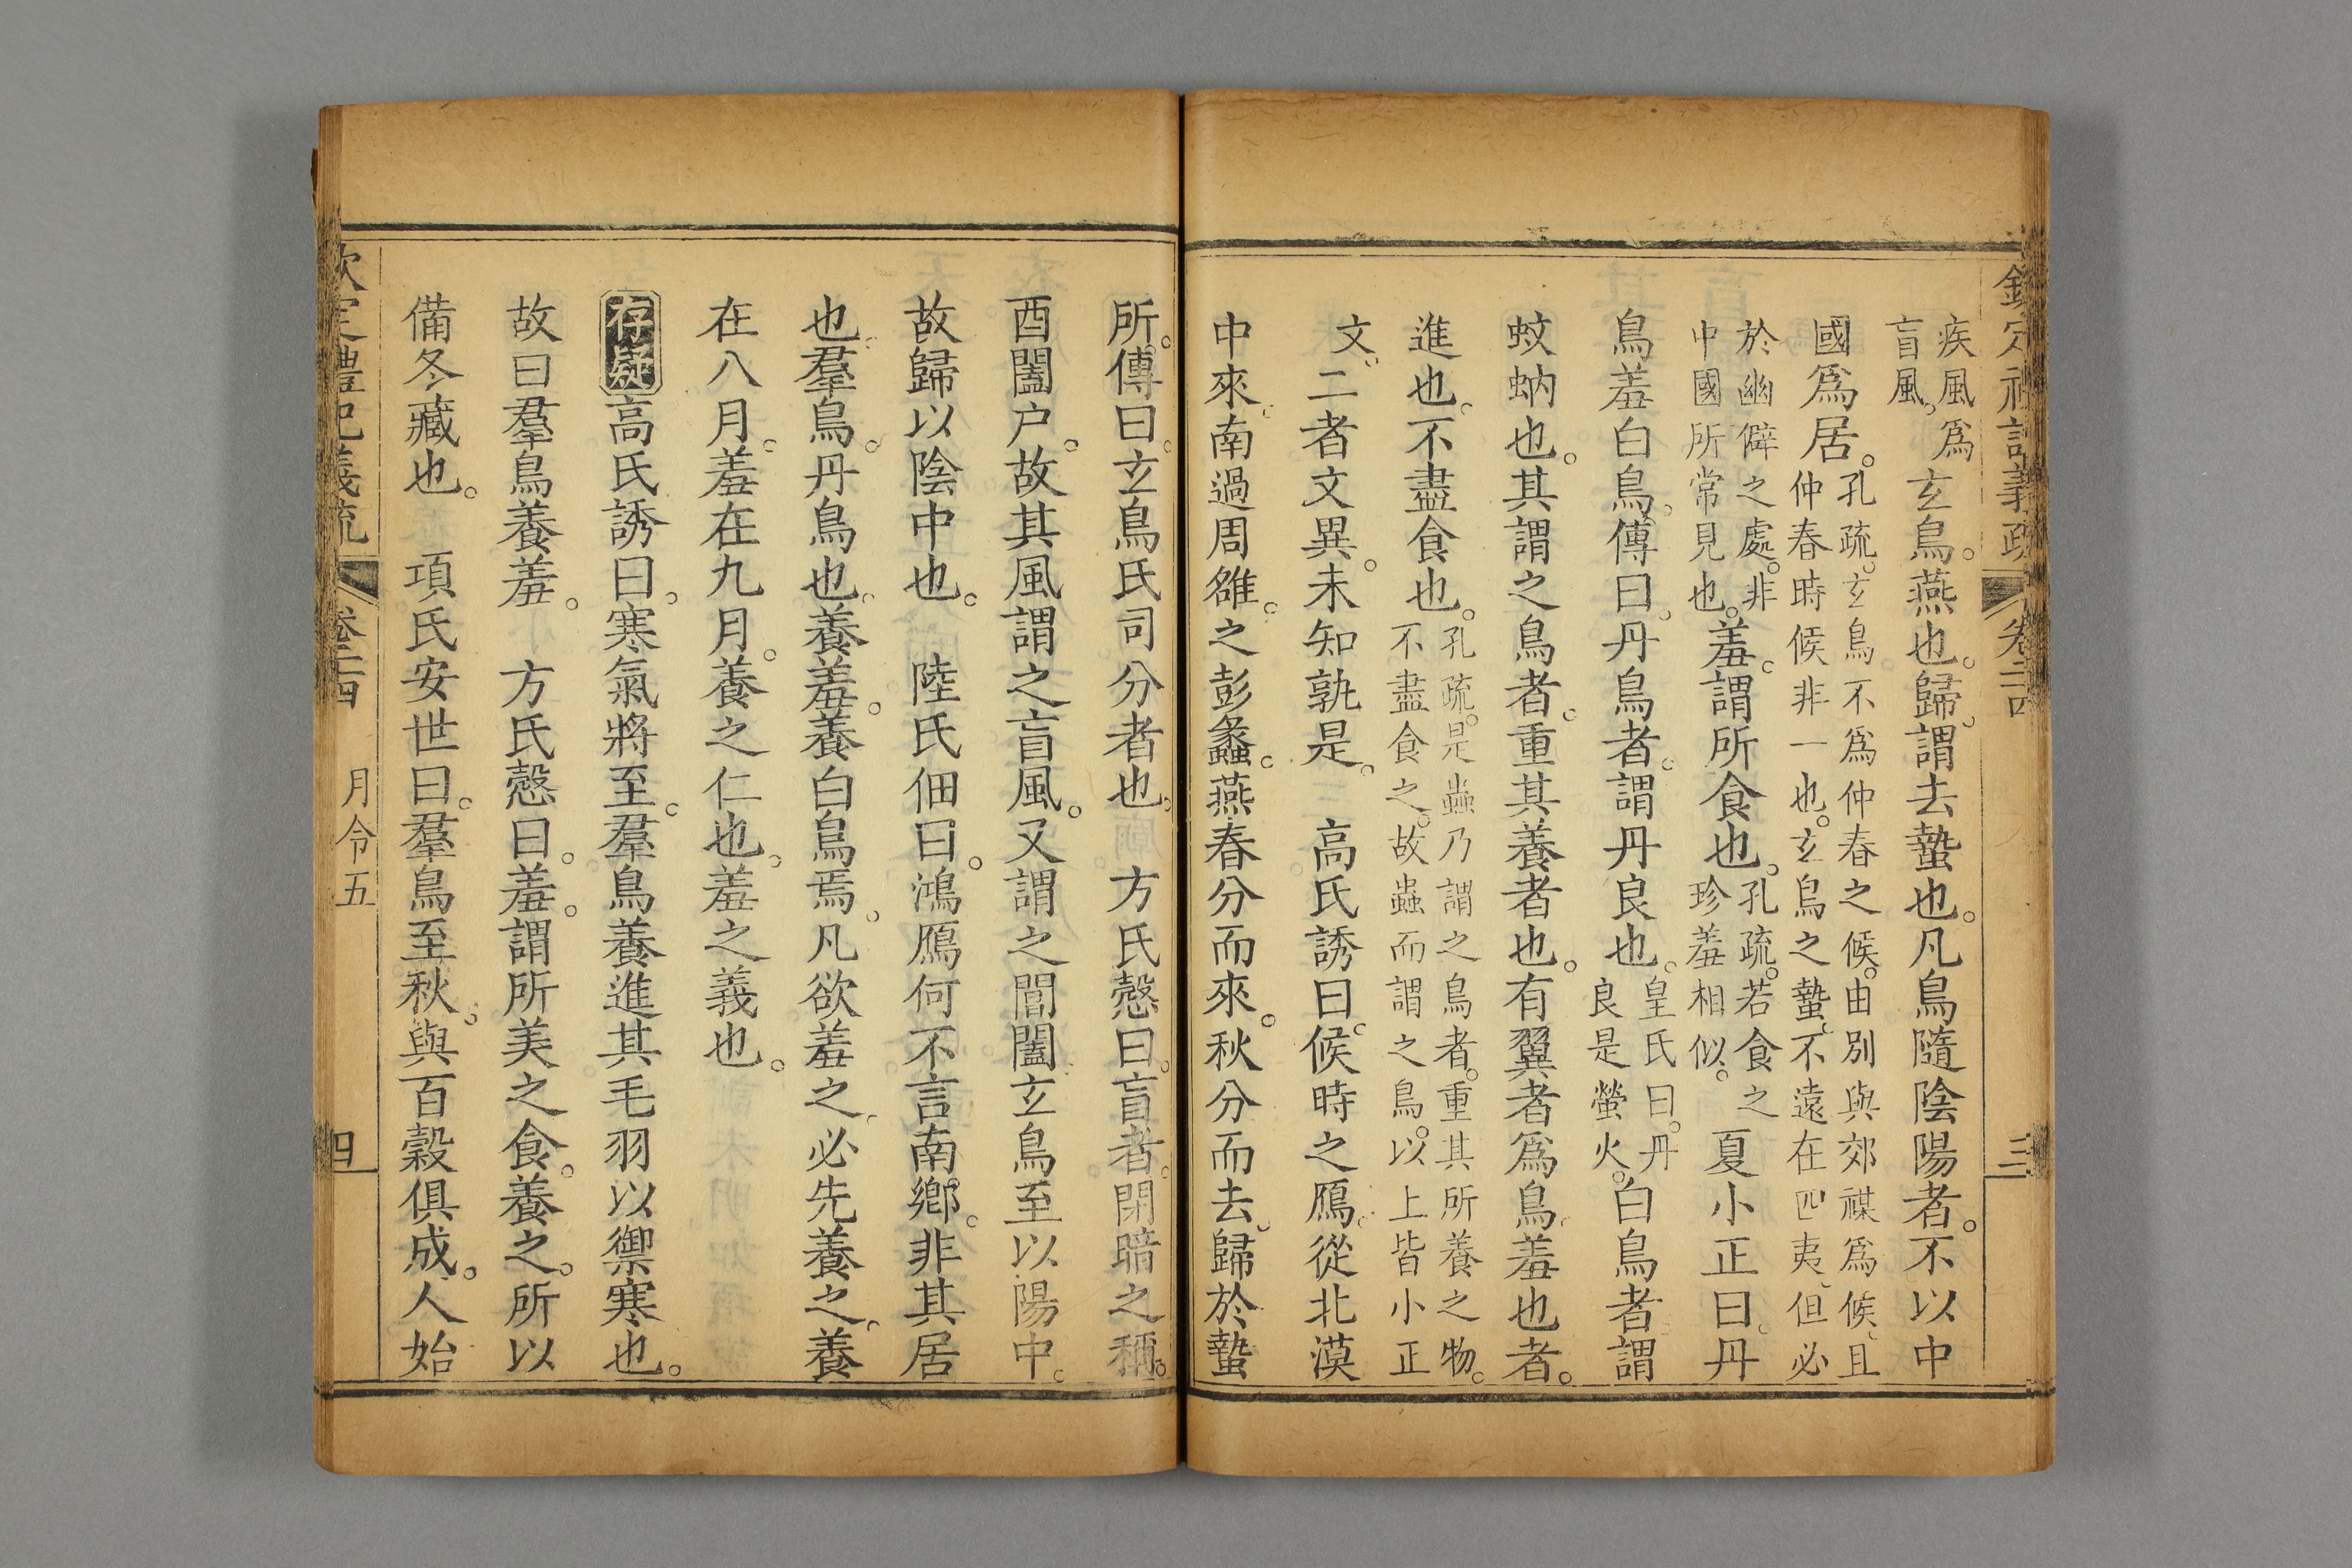 欽定禮記義疏 卷二四 三
疾風爲盲風。玄鳥。燕也。歸。謂去蟄也。凡鳥隨陰陽者。不以中
國爲居。孔疏。玄鳥不爲仲春之候。由別與郊禖爲候。且仲春時候非一也。玄鳥之蟄。不遠在四夷。但必
於幽僻之處。非中國所常見也。羞。謂所食也。孔疏。若食之珍羞相似。夏小正曰。丹
鳥羞白鳥。傳曰。丹鳥者。謂丹良也。皇氏曰。丹良是螢火。白鳥者。謂
蚊蚋也。其謂之鳥者。重其養者也。有翼者爲鳥。羞也者。
進也。不盡食也。孔疏。是蟲乃謂之鳥者。重其所養之物。不盡食之。故蟲而謂之鳥。以上皆小正
文。二者文異。未知孰是。　高氏誘曰。候時之鴈。從北漠
中來。南過周雒。之彭蠡。燕春分而來。秋分而去。歸於蟄
所。傳曰。玄鳥氏司分者也。　方氏愨曰。盲者。閉暗之稱。
酉闔户。故其風謂之盲風。又謂之閶闔玄鳥至以陽中。
故歸以陰中也。　陸氏佃曰。鴻鴈何不言南鄉。非其居
也。羣鳥。丹鳥也。養羞。養白鳥焉。凡欲羞之。必先養之。養
在八月。羞在九月。養之仁也。羞之義也。
存疑高氏誘曰。寒氣將至。羣鳥養進其毛羽以禦寒也。
故曰羣鳥養羞。　方氏愨曰。羞。謂所美之食。養之。所以
備冬藏也。　項氏安世曰。羣鳥至秋。與百穀俱成。人始
欽定禮記義疏 卷二四 月令五 四